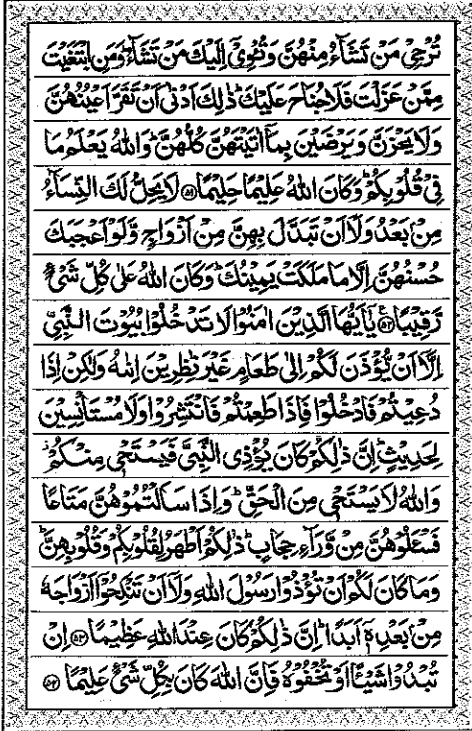 تُرْجِیْ مَنْ تَشَآءُ مِنْهُنَّ وَتُــْٔوِیْۤ اِلَیْكَ مَنْ تَشَآءُ ؕ وَمَنِ ابْتَغَیْتَ
مِمَّنْ عَزَلْتَ فَلَا جُنَاحَ عَلَیْكَ ؕ ذٰلِكَ اَدْنٰۤی اَنْ تَقَرَّ اَعْیُنُهُنَّ
وَلَا یَحْزَنَّ وَیَرْضَیْنَ بِمَاۤ اٰتَیْتَهُنَّ كُلُّهُنَّ ؕ وَاللّٰهُ یَعْلَمُ مَا
فِیْ قُلُوْبِكُمْ ؕ وَكَانَ اللّٰهُ عَلِیْمًا حَلِیْمًا ۝۵۱ لَا یَحِلُّ لَكَ النِّسَآءُ
مِنْۢ بَعْدُ وَلَاۤ اَنْ تَبَدَّلَ بِهِنَّ مِنْ اَزْوَاجٍ وَّلَوْ اَعْجَبَكَ
حُسْنُهُنَّ اِلَّا مَا مَلَكَتْ یَمِیْنُكَ ؕ وَكَانَ اللّٰهُ عَلٰی كُلِّ شَیْءٍ
رَّقِیْبًا ۝۵۲ یٰۤاَیُّهَا الَّذِیْنَ اٰمَنُوْا لَا تَدْخُلُوْا بُیُوْتَ النَّبِیِّ
اِلَّاۤ اَنْ یُّؤْذَنَ لَكُمْ اِلٰی طَعَامٍ غَیْرَ نٰظِرِیْنَ اِنٰىهُ وَلٰكِنْ اِذَا
دُعِیْتُمْ فَادْخُلُوْا فَاِذَا طَعِمْتُمْ فَانْتَشِرُوْا وَلَا مُسْتَاْنِسِیْنَ
لِحَدِیْثٍ ؕ اِنَّ ذٰلِكُمْ كَانَ یُؤْذِی النَّبِیَّ فَیَسْتَحْیٖ مِنْكُمْ ؗ
وَاللّٰهُ لَا یَسْتَحْیٖ مِنَ الْحَقِّ ؕ وَاِذَا سَاَلْتُمُوْهُنَّ مَتَاعًا
فَسْـَٔلُوْهُنَّ مِنْ وَّرَآءِ حِجَابٍ ؕ ذٰلِكُمْ اَطْهَرُ لِقُلُوْبِكُمْ وَقُلُوْبِهِنَّ ؕ
وَمَا كَانَ لَكُمْ اَنْ تُؤْذُوْا رَسُوْلَ اللّٰهِ وَلَاۤ اَنْ تَنْكِحُوْۤا اَزْوَاجَهٗ
مِنْۢ بَعْدِهٖۤ اَبَدًا ؕ اِنَّ ذٰلِكُمْ كَانَ عِنْدَ اللّٰهِ عَظِیْمًا ۝۵۳ اِنْ
تُبْدُوْا شَیْـًٔا اَوْ تُخْفُوْهُ فَاِنَّ اللّٰهَ كَانَ بِكُلِّ شَیْءٍ عَلِیْمًا ۝۵۴